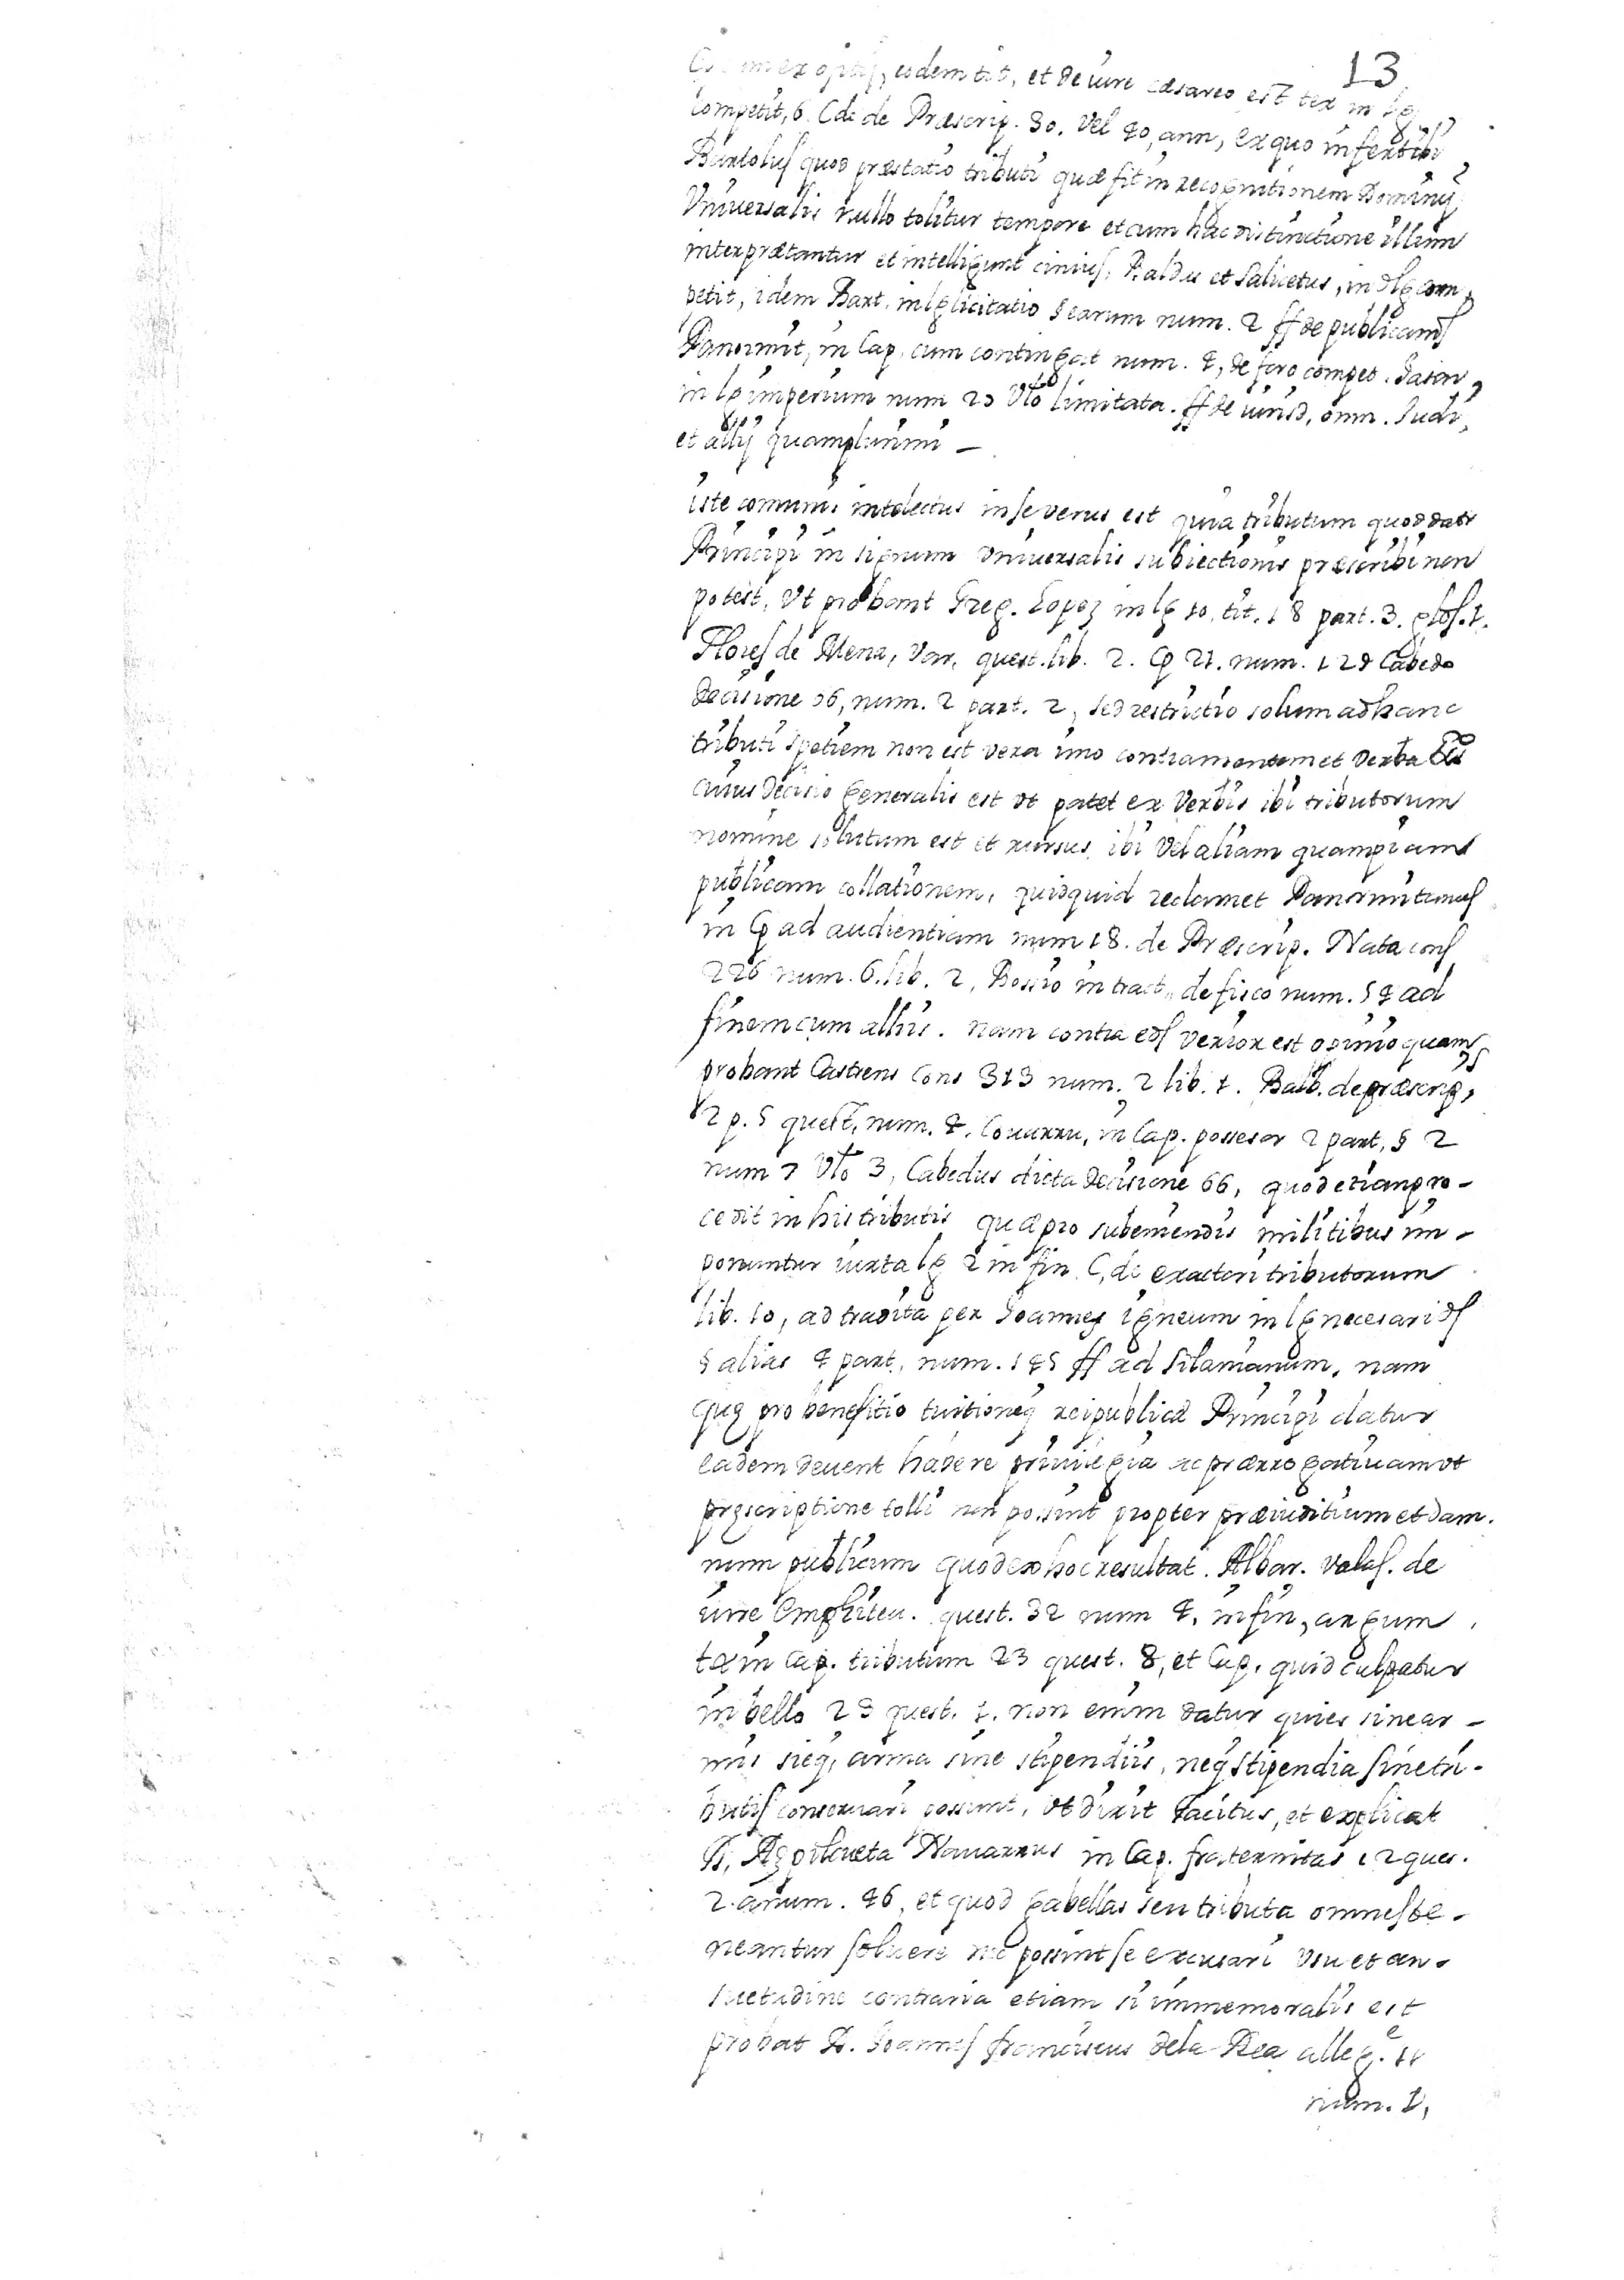 13
eodem tit, et de iure cæsareo est tex in lg
competit, 6. C de de Præscrip. 30. Vel 40, ann, ex quo infert ibi
Bartolus quod præstatio tributi quæ fit in recognitionem Dominij
Vniuersalis nullo tolitur tempore et cum hac distinctione illum
interprætantur et intelligunt cinius, Baldus et Salicetus, in d lg com,
petit, idem Bart. in lg licitatio § earum num. 2 ff de publicanis
Panormit, in Cap. cum contingat num. 4, de foro compet. Jason,
in lg imperium num 20 Vto limitata. ff de iurisd, omn. Judi,
et allij quamplurimi –
iste comunis intelectus in se verus est quia tributum quod datr
Principi in signum Vniuersalis subiectionis præscribi non
potest, Vt probant Greg. Lopez in lg 10, tit. 18 part. 3. glos. 1.
Flores de Mena, Var, quest. lib. 2. q 21. num. 129 Cabedo
decisione 96, num. 2 part. 2, sed restrictio solum ad hanc
tributi spetiem non est vera imo contra mentem et Verba
cuius decisio generalis est vt patet ex Verbis ibi tributorum
nomine solutum est et rursus, ibi Vel aliam quampiam
publicam collationem, quidquid reclamet Panormitanus
in Cp ad audientiam num 18. de Præscrip. Nata cons
226 num. 6. lib. 2, Bossio in tract, de fisco num. 54 ad
finem cum alliis. nam contra eos verior est opinio quam
probant Castrens Cons 313 num. 2 lib. 1. Balb. de præscrip,
2 p. 5 quest, num. 4. Couarru, in Cap. possesor 2 part, § 2
num 7 Vto 3, Cabedus dicta decisione 66, quod etiam pro-
cedit in his tributis quæ pro subemendis militibus im-
ponuntur iuxta lg 2 in fin C, de exactori tributorum
lib. 10, ad tradita per Joannes igneum in lg necesarios
§ alias 4 part, num. 145 ff ad Silamanum. nam
quæ pro benefitio tuitioneq reipublicæ Principi datur
eadem deuent habere priuilegia ac prærrogatiuam vt
præscriptione tolli non possint propter præiuditium et dam.
num publicum quod ex hoc resultat. Albar. Valas. de
iure Emphiteu. quest. 32 num 4. in fin, argum
tex in Cap. tributum 23 quest. 8, et Cap. quid culpatur
in bello 23 quest. 1. non enim datur quies sine ar-
mis sieq, arma sine stipendiis, neq stipendia sine tri-
butis conseruari possunt, Vt dixit Tacitus, et explicat
D, Azpilcueta Nauarrus in Cap. fraternitas 12 ques.
2. a num. 46, et quod gabellas seu tributa omnes te-
neantur soluere nec possint se excusari Vsu et con-
suetudine contraria etiam si immemoralis est
probat D. Joannes franciscus de la Rea alleg. 11
num. 1,